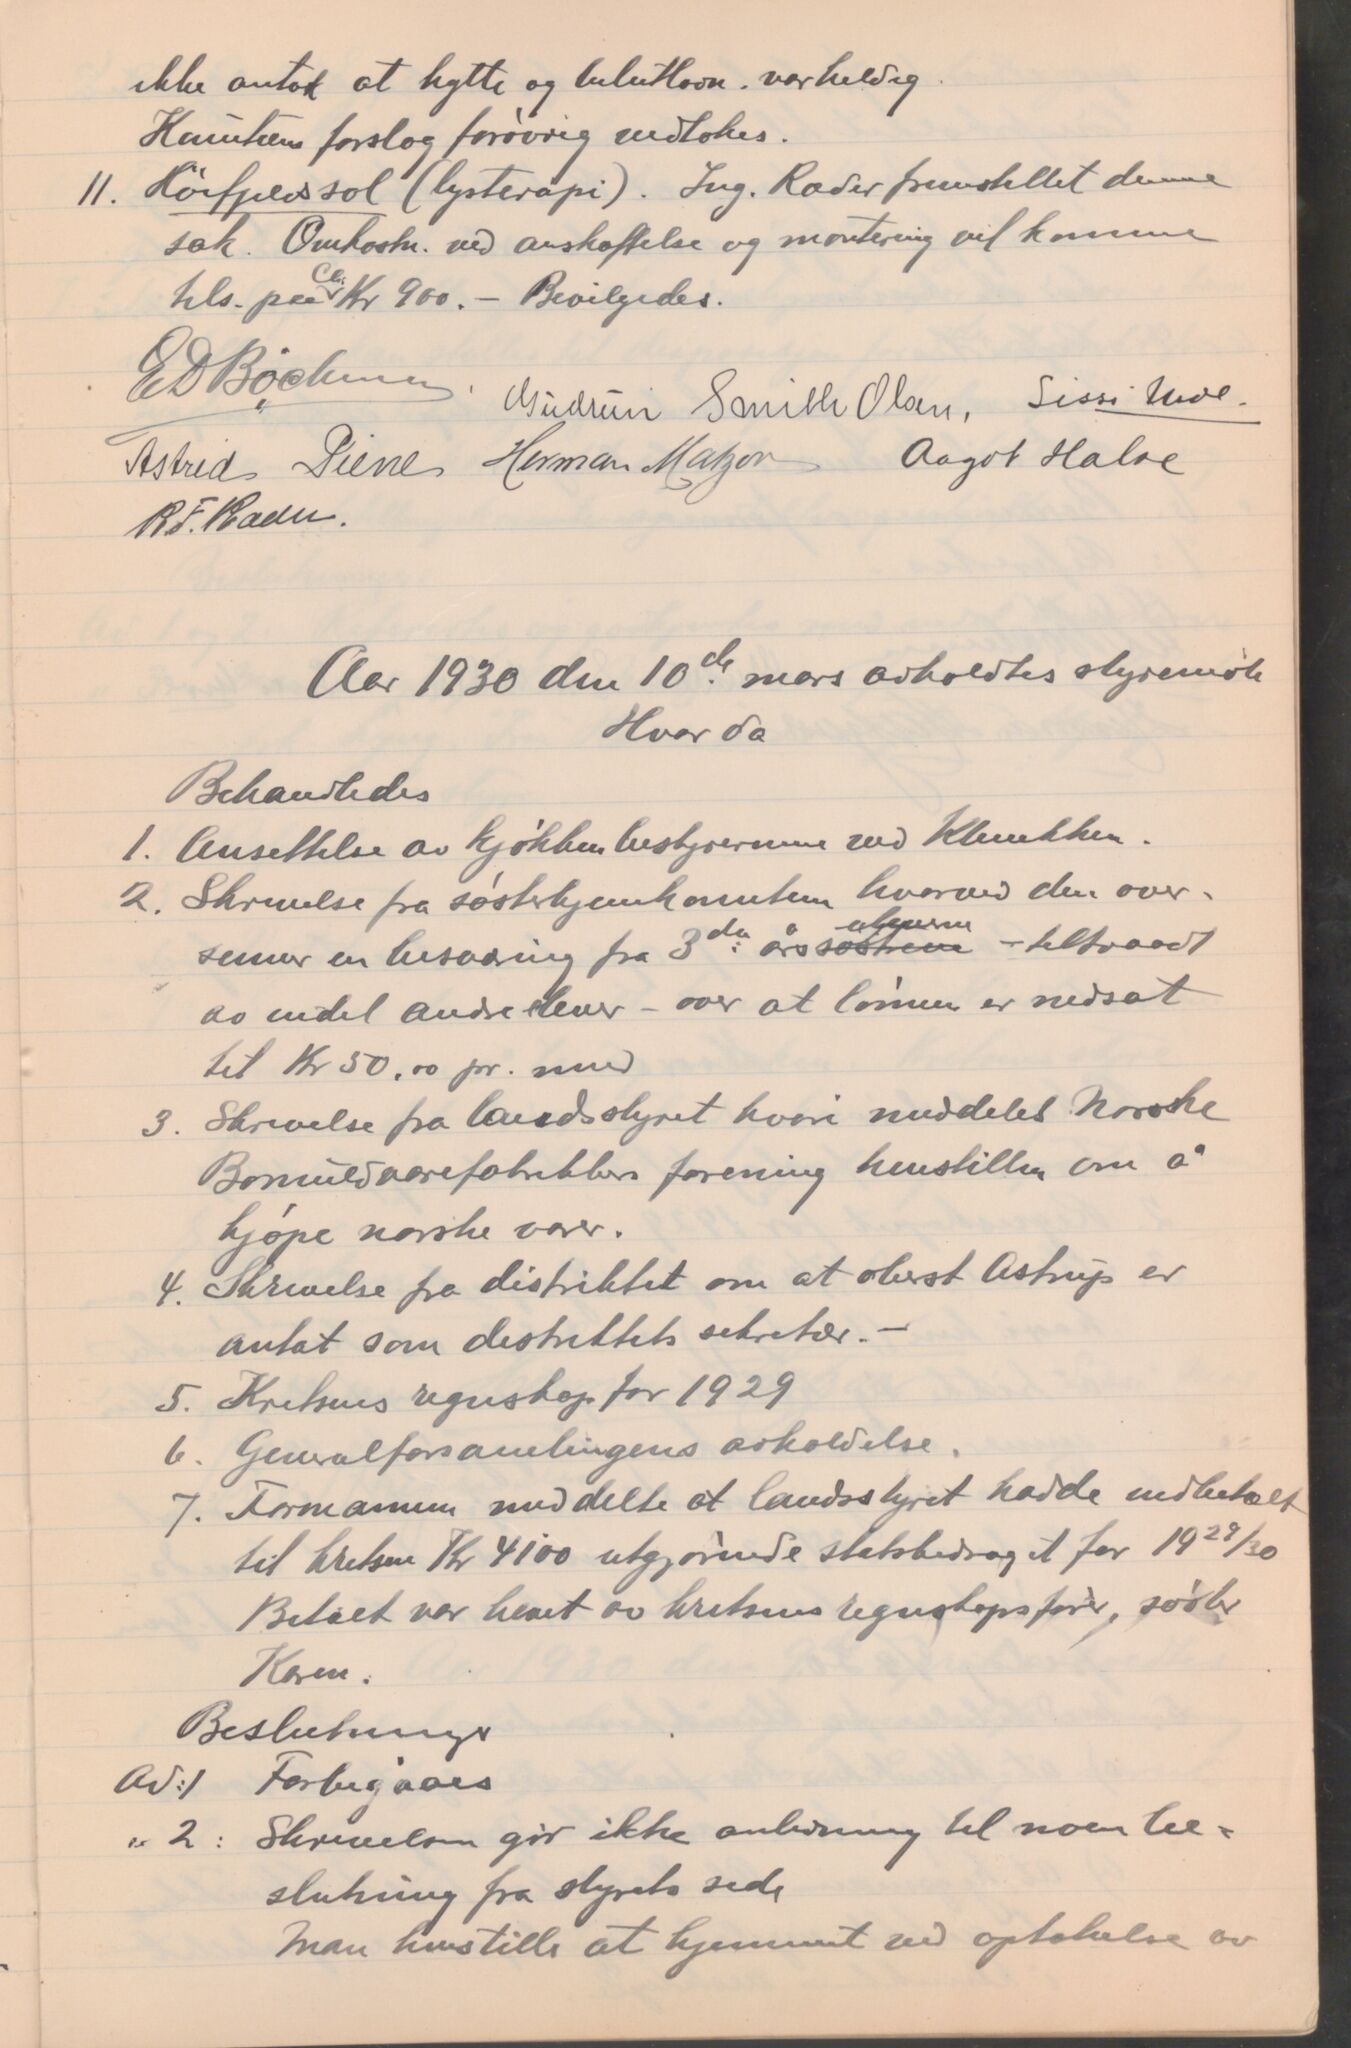 ikke antok at hytte og var heldig.
Komiteens forslag forøvrig vedtokes.
11. Höifjeldssol (lysterapi). Ing. Rader fremstillet denne
sak. Omkostn. ved anskaffelse og montering vil komme
tils. paa Ca. Kr 900.- Bevilgedes.
E D Bøchman Gudrun Smith Olsen, Sissi
Astrid Piene Herman Matzon Aagot Halse
R F. Rader.
Aar 1930 den 10de mars avholdtes styremöte
Hvor da
Behandledes
1. Ansettelse av kjökkenbestyrerinne ved Klinikken.
2. Skrivelse fra søsterhjemkomiteen hvorved den over-
sender en besværing fra 3die års elevene søstrene - tiltraadt
av endel andre elever - over at lönnen er nedsat
til Kr 50,00 pr. mnd
3. Skrivelse fra landsstyret hvori meddeles Norske
Bomuldvarefabrikkers forening henstiller om å
kjöpe norske varer.
4. Skrivelse fra distriktet om at oberst Astrup er
antat som distriktets sekretær. -
5. Kretsens regnskap for 1929
6. Generalforsamlingens avholdelse.
7. Formannen meddelte at landsstyret hadde indbetalt
til kretsen Kr 4100 utgjörende statsbidraget for 1929/30
Belöet var hevet av kretsens regnskapsförer, söster
Karen.
Beslutninger
Ad: 1 Forbigaaes
" 2: Skrivelsen gir ikke anledning til noen be-
slutning fra styrets side
Man henstille at hjemmet ved optakelse av